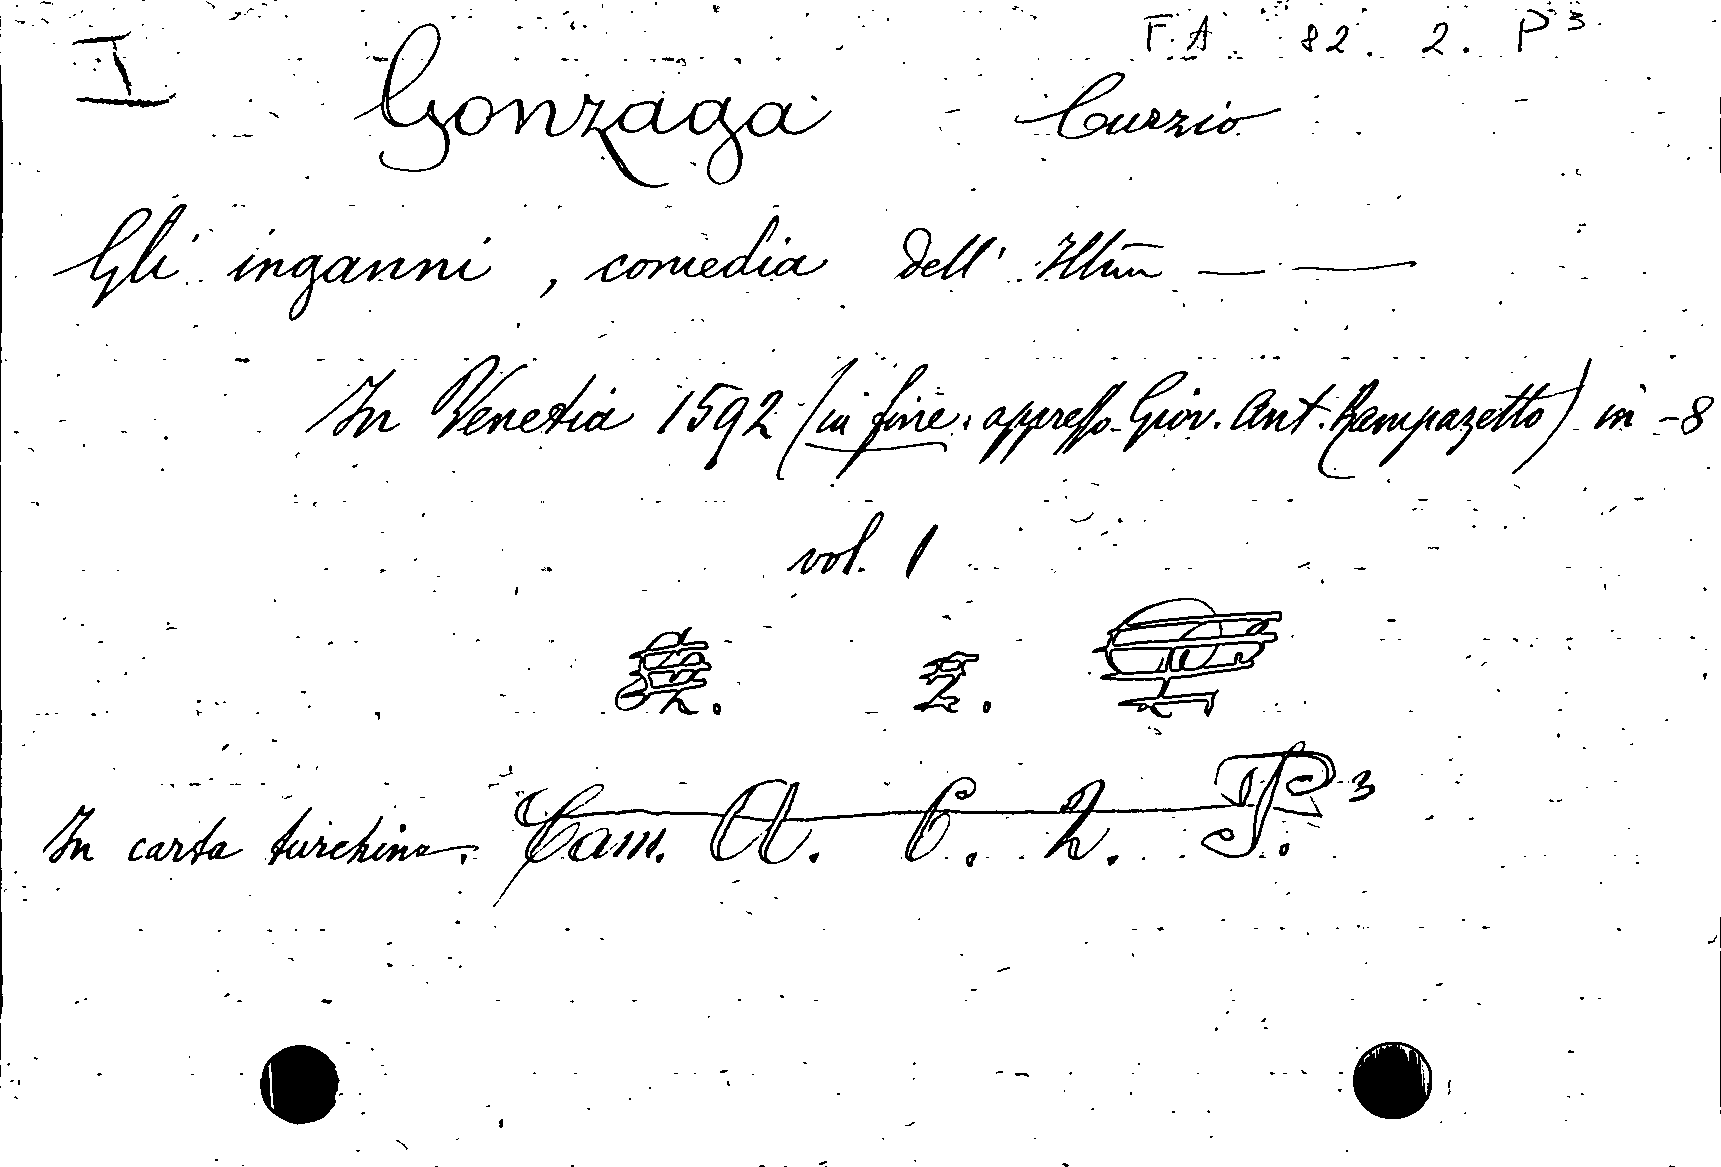 F.A. 82. 2. P³
I Gonzaga Curzio
Gli inganni, comedia dell' Illm̄ — —
In Venetia 1592 (in fine: appresso Giov. Ant. Rampazetto) in-8
vol. 1
82. 2.
In carta turchina. Cam. A. 6. 2. P.³